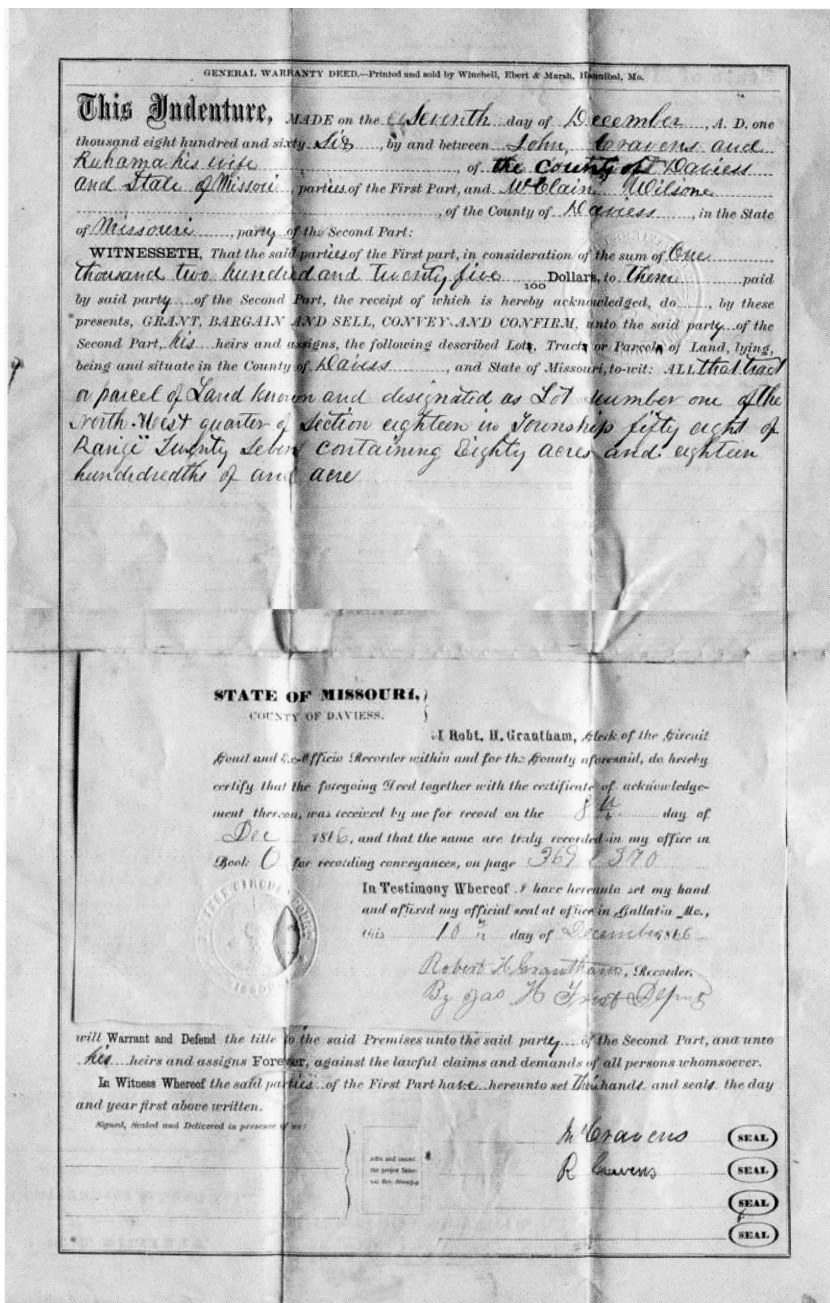 GENERAL WARRANTY DEED.—Printed and sold by Winchell, Ebert & Marsh, Hannibal, Mo.
This Indenture, MADE on the Seventh day of December, A. D. one
thousand eight hundred and sixty Six, by and between John Cravens and
Ruhama his wife, of the county of Daviess
and State of Missori, parties of the First Part, and McClain Wilson
, of the County of Daviess, in the State
of Missouri, party of the Second Part:
WITNESSETH, That the said parties of the First part, in consideration of the sum of One
thousand two hundred and twenty five 100 Dollars, to them paid
by said party of the Second Part, the receipt of which is hereby acknowledged, do, by these
presents, GRANT, BARGAIN AND SELL, CONVEY AND CONFIRM, unto the said party of the
Second Part, his heirs and assigns, the following described Lots, Tracts or Parcels of Land, lying,
being and situate in the County of Daviess, and State of Missouri, to-wit: ALL that tract
or parcel of Land known and designated as Lot number one of the
North West quarter of Section eighteen in Township fifty eight of
Range Twenty Seven containing Eighty acres and eighteen
hundredths of an acre
STATE OF MISSOURI,
COUNTY OF DAVIESS.
I Robt. H. Grantham, Clerk of the Circuit
Court and Ex-Officio Recorder within and for the County aforesaid, do hereby
certify that the foregoing Deed together with the certificate of acknowledge-
ment thereon, was received by me for record on the 8th day of
Dec 1866, and that the same are truly recorded in my office in
Book for recording conveyances, on page 369 & 370
In Testimony Whereof I have hereunto set my hand
and affixed my official seal at office in Gallatin Mo.,
this 10th day of December 1866
Robert H Grantham, Recorder.
By Jas H Frost Deputy
will Warrant and Defend the title to the said Premises unto the said party of the Second Part, and unto
his heirs and assigns Forever, against the lawful claims and demands of all persons whomsoever.
In Witness Whereof the said parties of the First Part have hereunto set their hands and seals the day
and year first above written.
Signed, Sealed and Delivered in presence of us:
Cravens SEAL
R Cravens SEAL
SEAL
SEAL